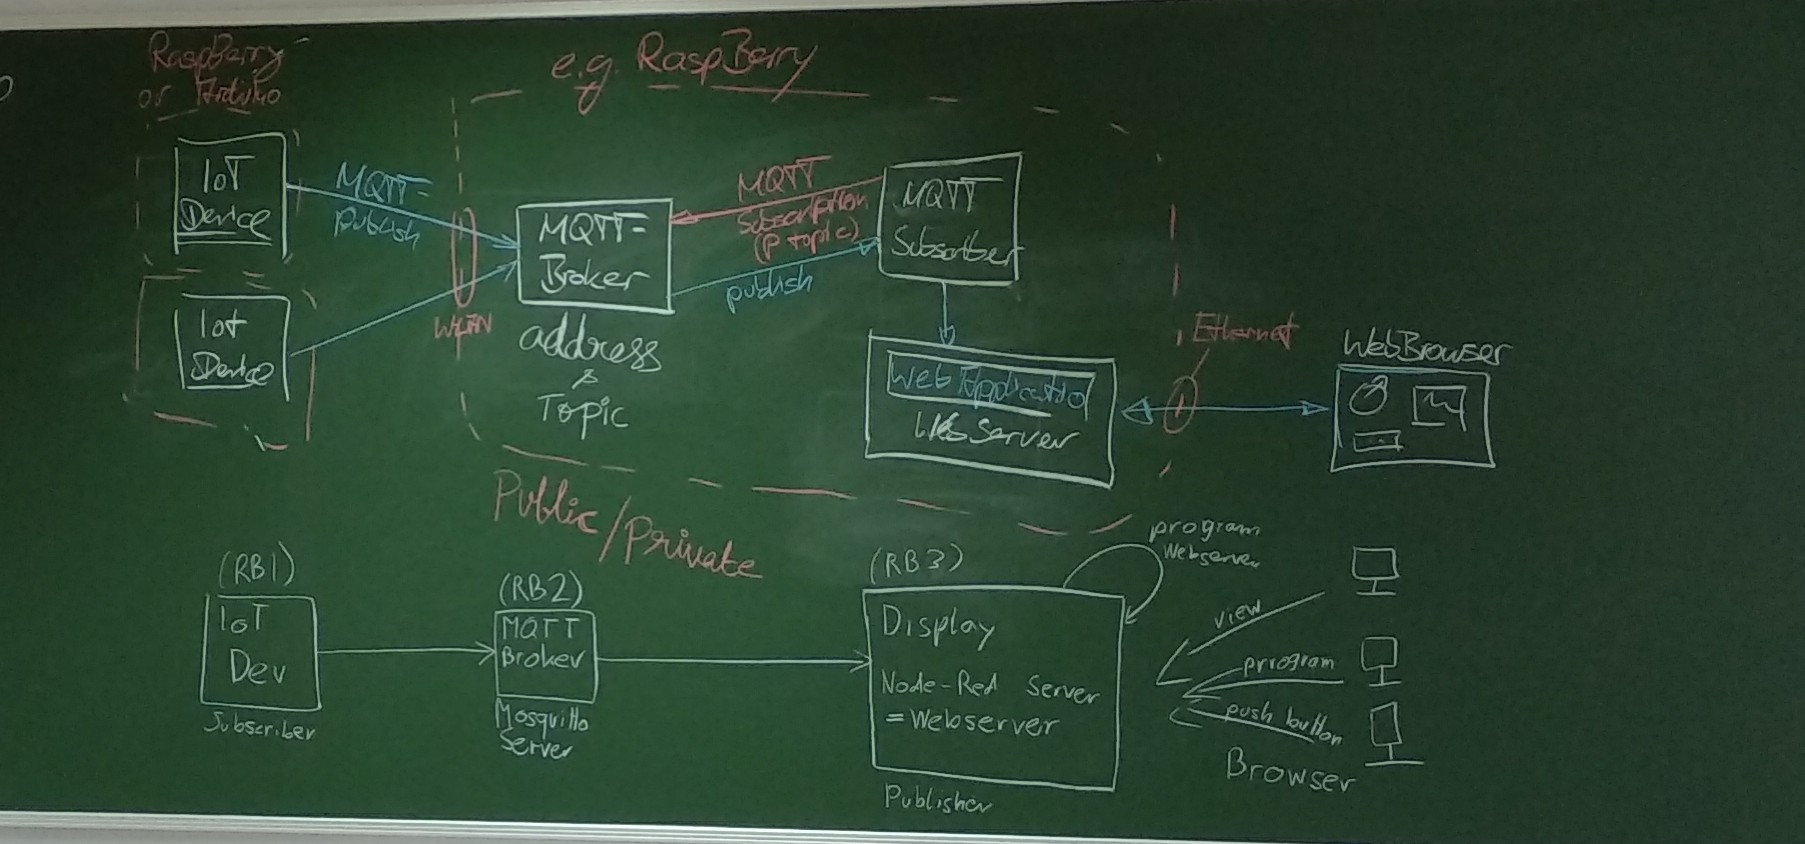 RaspBerry
or Arduino
e.g. RaspBerry
IoT
Device
MQTT-
publish
MQTT-
Broker
MQTT
Subscription
(P topic)
publish
MQTT
Subscriber
Iot
Device
WLAN
address
&
Topic
Web Applicatio
WebServer
Ethernet
WebBrowser
Public/Private
(RB1)
IoT
Dev
Subscriber
(RB2)
MQTT
Broker
Mosquitto
Server
(RB3)
Display
Node-Red Server
= Webserver
Publisher
program
Webserver
view
program
push button
Browser